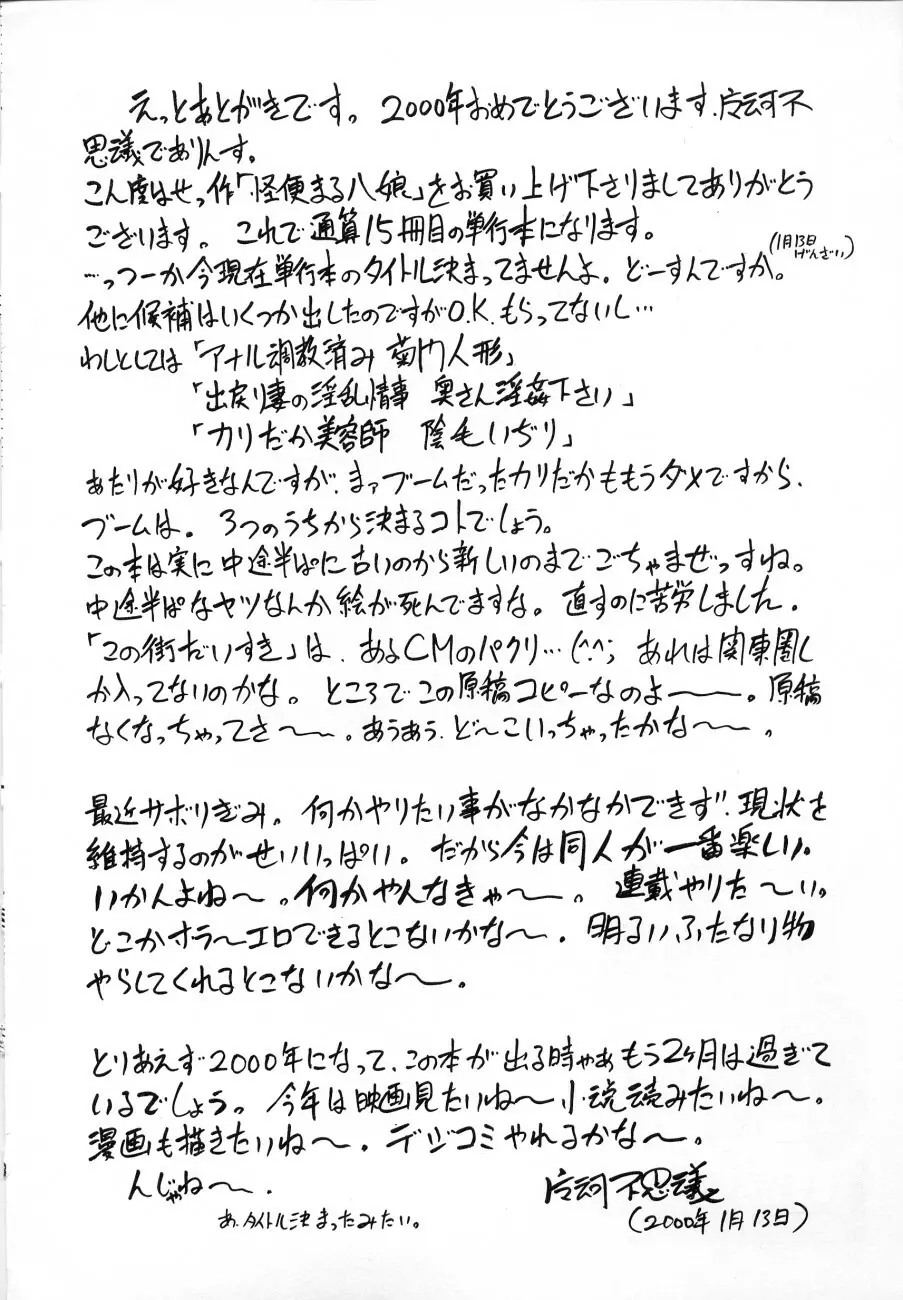 えっとあとがきです。2000年おめでとうございます。岩河不
思議でありんす。
こん度はせっ作「怪便まる八娘」をお買い上げ下さりましてありがとう
ございます。これで通算15冊目の単行本になります。
(1月13日
げんざい)
…っつーか今現在単行本のタイトル決まってませんよ。どーすんですか。
他に候補はいくつか出したのですがO.K.もらってないし…
わしとしては「アナル調教済み 菊門人形」
「出戻り妻の淫乱情事 奥さん淫姦下さい」
「カリだか美容師 陰毛いぢり」
あたりが好きなんですが、まァブームだったカリだかももうダメですから、
ブームは。3つのうちから決まるコトでしょう。
この本は実に中途半ぱに古いのから新しいのまでごちゃまぜっすね。
中途半ぱなヤツなんか絵が死んでますな。直すのに苦労しました。
「この街だいすき」は、あるCMのパクリ…(^^; あれは関東圏し
か入ってないのかな。ところでこの原稿コピーなのよ――。原稿
なくなっちゃってさ〜〜。あうあう、ど〜こいっちゃったかな〜〜。
最近サボリぎみ。何かやりたい事がなかなかできず、現状を
維持するのがせいいっぱい。だから今は同人が一番楽しい。
いかんよね〜。何かやんなきゃ〜。連載やりた〜い。
どこかホラ〜エロできるとこないかな〜。明るいふたなり物
やらしてくれるとこないかな〜。
とりあえず2000年になって、この本が出る時ゃあもう2ヶ月は過ぎて
いるでしょう。今年は映画見たいね〜小説読みたいね〜。
漫画も描きたいね〜。デジコミやれるかな〜。
んじゃね〜。
不思議
あ、タイトル決まったみたい。
(2000年1月13日)